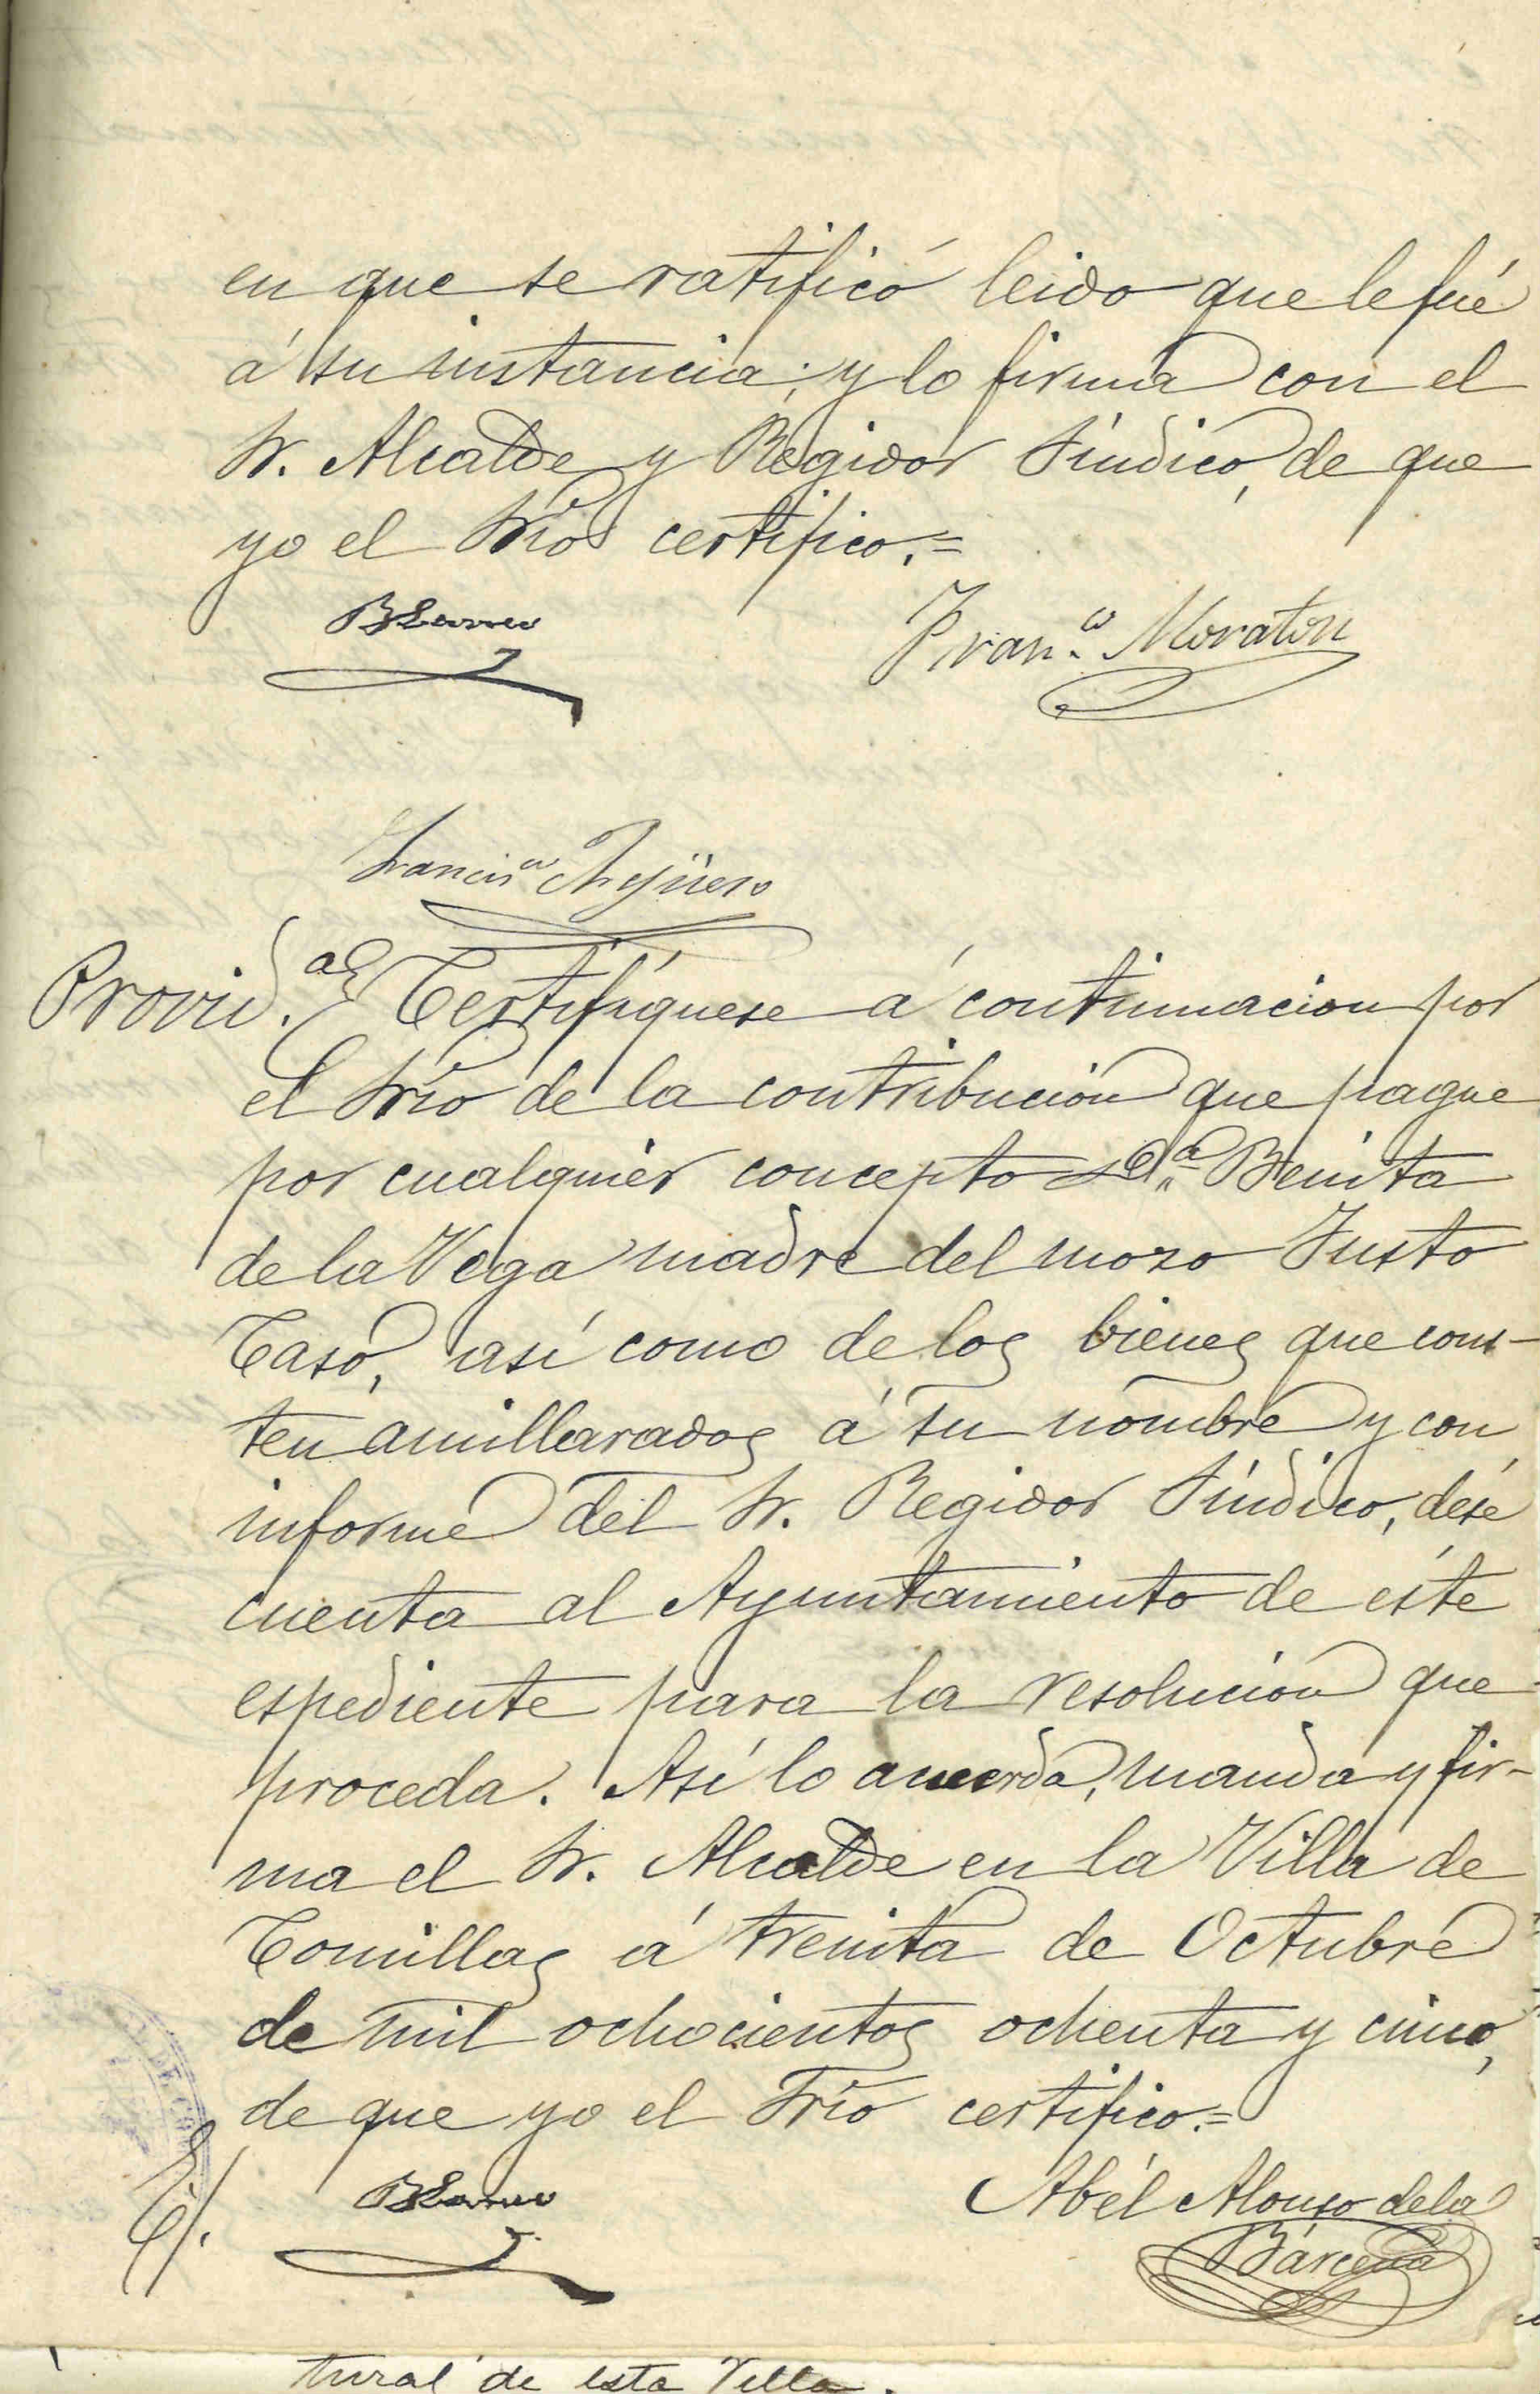 en que se ratificó leido que le fué
á su instancia; y lo firma con el
Sr. Alcalde y Regidor Síndico, de que
yo el Srio certifico.=
Fran.co Moraton
Francisco Agüero
Provid.a Certifíquese á continuacion por
el Srio de la contribución que pague
por cualquier concepto D.a Benita
de la Vega madre del mozo Justo
Caso, así como de los bienes que cons-
ten amillarados á su nombre y con
informe del Sr. Regidor Síndico, dése
cuenta al Ayuntamiento de éste
espediente para la resolución que
proceda. Así lo acuerda, manda y fir-
ma el Sr. Alcalde en la Villa de
Comillas á treinta de Octubre
de mil ochocientos ochenta y cinco,
de que yo el Srio certifico.=
Abél Alonso de la
Bárcena
tural de esta Villa.